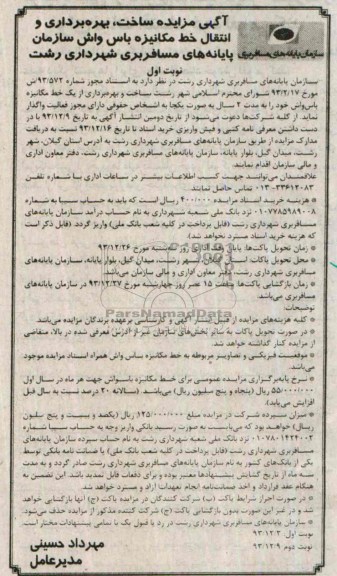 آگهی مزایده ساخت، بهره‌برداری و
انتقال خط مکانیزه باس واش سازمان
پایانه‌های مسافربری شهرداری رشت
سازمان پایانه‌های مسافربری
نوبت اول
سازمان پایانه‌های مسافربری شهرداری رشت در نظر دارد به استناد مجوز شماره ۹۳/۵۷۲/ش
مورخ ۹۳/۲/۱۷ شورای محترم اسلامی شهر رشت، ساخت و بهره‌برداری از یک خط مکانیزه
باس‌واش خود را به مدت ۲ سال به صورت یکجا به اشخاص حقوقی دارای مجوز فعالیت واگذار
نماید. از کلیه شرکت‌ها دعوت می‌شود از تاریخ دومین انتشار آگهی به تاریخ ۹۳/۱۲/۹ با در
دست داشتن معرفی نامه کتبی و فیش واریزی خرید اسناد تا تاریخ ۹۳/۱۲/۱۶ نسبت به دریافت
مدارک مزایده از طریق سازمان پایانه‌های مسافربری شهرداری رشت به آدرس استان گیلان، شهر
رشت، میدان گیل، بلوار پایانه، سازمان پایانه‌های مسافربری شهرداری رشت، دفتر معاون اداری
و مالی سازمان اقدام نمایند.
علاقمندان می‌توانند جهت کسب اطلاعات بیشتر در ساعات اداری با شماره تلفن
۳۳۶۱۲۰۸۳-۰۱۳ تماس حاصل نمایند.
* هزینه خرید اسناد مزایده ۴۰۰/۰۰۰ ریال است که باید به حساب سیبا به شماره
۰۱۰۷۷۸۵۹۸۹۰۰۸ نزد بانک ملی شعبه شهرداری به نام حساب درآمد سازمان پایانه‌های
مسافربری شهرداری رشت (قابل پرداخت در کلیه شعب بانک ملی) واریز گردد. (قابل ذکر است
که هزینه خرید اسناد مسترد نخواهد شد)
* زمان تحویل پاکت‌ها: پایان وقت اداری روز سه‌شنبه مورخ ۹۳/۱۲/۲۶
* محل تحویل پاکات: استان گیلان، شهر رشت، میدان گیل، بلوار پایانه، سازمان پایانه‌های
مسافربری شهرداری رشت، دفتر معاون اداری و مالی سازمان می‌باشد.
* زمان بازگشایی پاکت‌ها: ساعت ۱۵ عصر روز چهارشنبه مورخ ۹۳/۱۲/۲۷ در سازمان پایانه‌های
مسافربری می‌باشد.
توضیحات:
* کلیه هزینه‌های مزایده از قبیل نشر آگهی و کارشناسی برعهده برندگان مزایده می‌باشد.
* در صورت تحویل پاکات به سایر بخش‌های سازمان غیر از آدرس معرفی شده در بالا، متقاضی
از مزایده کنار گذاشته خواهد شد.
* موقعیت فیزیکی و تصاویر مربوطه به خط مکانیزه باس واش همراه اسناد مزایده موجود
می‌باشد.
* نرخ پایه‌برگزاری مزایده عمومی برای خط مکانیزه باسواش جهت هر ماه در سال اول
۵۵/۰۰۰/۰۰۰ ریال (پنجاه و پنج میلیون ریال) می‌باشد. (سالانه ۲۰ درصد نسبت به سال قبل
افزایش می‌یابد).
* میزان سپرده شرکت در مزایده مبلغ ۱۲۵/۰۰۰/۰۰۰ ریال (یکصد و بیست و پنج میلیون
ریال) خواهد بود که می‌بایست به صورت رسید بانکی واریز وجه به حساب سیبا شماره
۰۱۰۷۸۰۱۴۲۴۰۰۲ نزد بانک ملی شعبه شهرداری رشت به نام حساب سپرده سازمان پایانه‌های
مسافربری شهرداری رشت (قابل پرداخت در کلیه شعب بانک ملی) یا ضمانت نامه بانکی توسط
یکی از بانک‌های کشور به نام سازمان پایانه‌های مسافربری شهرداری رشت صادر گردد و به مدت
سه ماه از تاریخ گشایش پیشنهادها معتبر بوده و برای دفعات قابل تمدید باشد. این تضمین به
هنگام عقد قرارداد و اخذ ضمانت‌نامه انجام تعهدات آزاد و مسترد خواهد شد.
* در صورت احراز شرایط پاکت (ب) شرکت کنندگان در مزایده پاکت (ج) آنها بازگشایی خواهد
شد و در غیر این صورت بدون بازگشایی پاکت (ج) شرکت کننده مذکور از مزایده حذف می‌شود.
* سازمان پایانه‌های مسافربری شهرداری رشت در رد یا قبول یک یا تمامی پیشنهادات مختار است.
نوبت اول ۹۳/۱۲/۲
نوبت دوم ۹۳/۱۲/۹
مهرداد حسینی
مدیرعامل